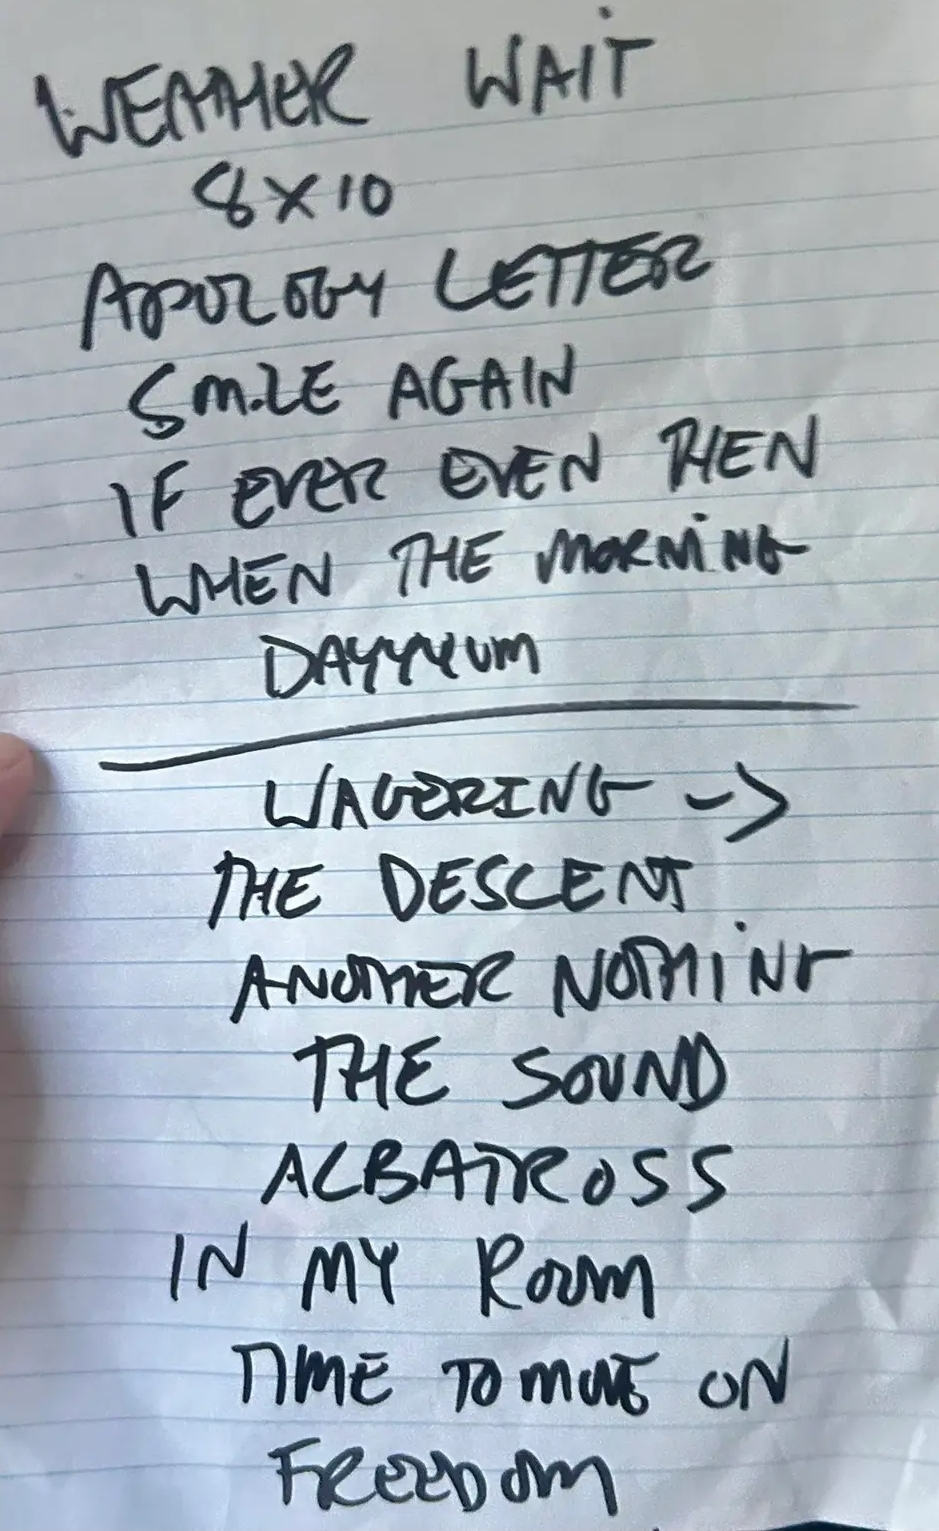 WEATHER WAIT
8X10
APOLOGY LETTER
SMILE AGAIN
IF EVER EVEN THEN
WHEN THE MORNING
DAYYYUM
WAGERING ->
THE DESCENT
ANOTHER NOTHING
THE SOUND
ALBATROSS
IN MY ROOM
TIME TO MOVE ON
FREEDOM